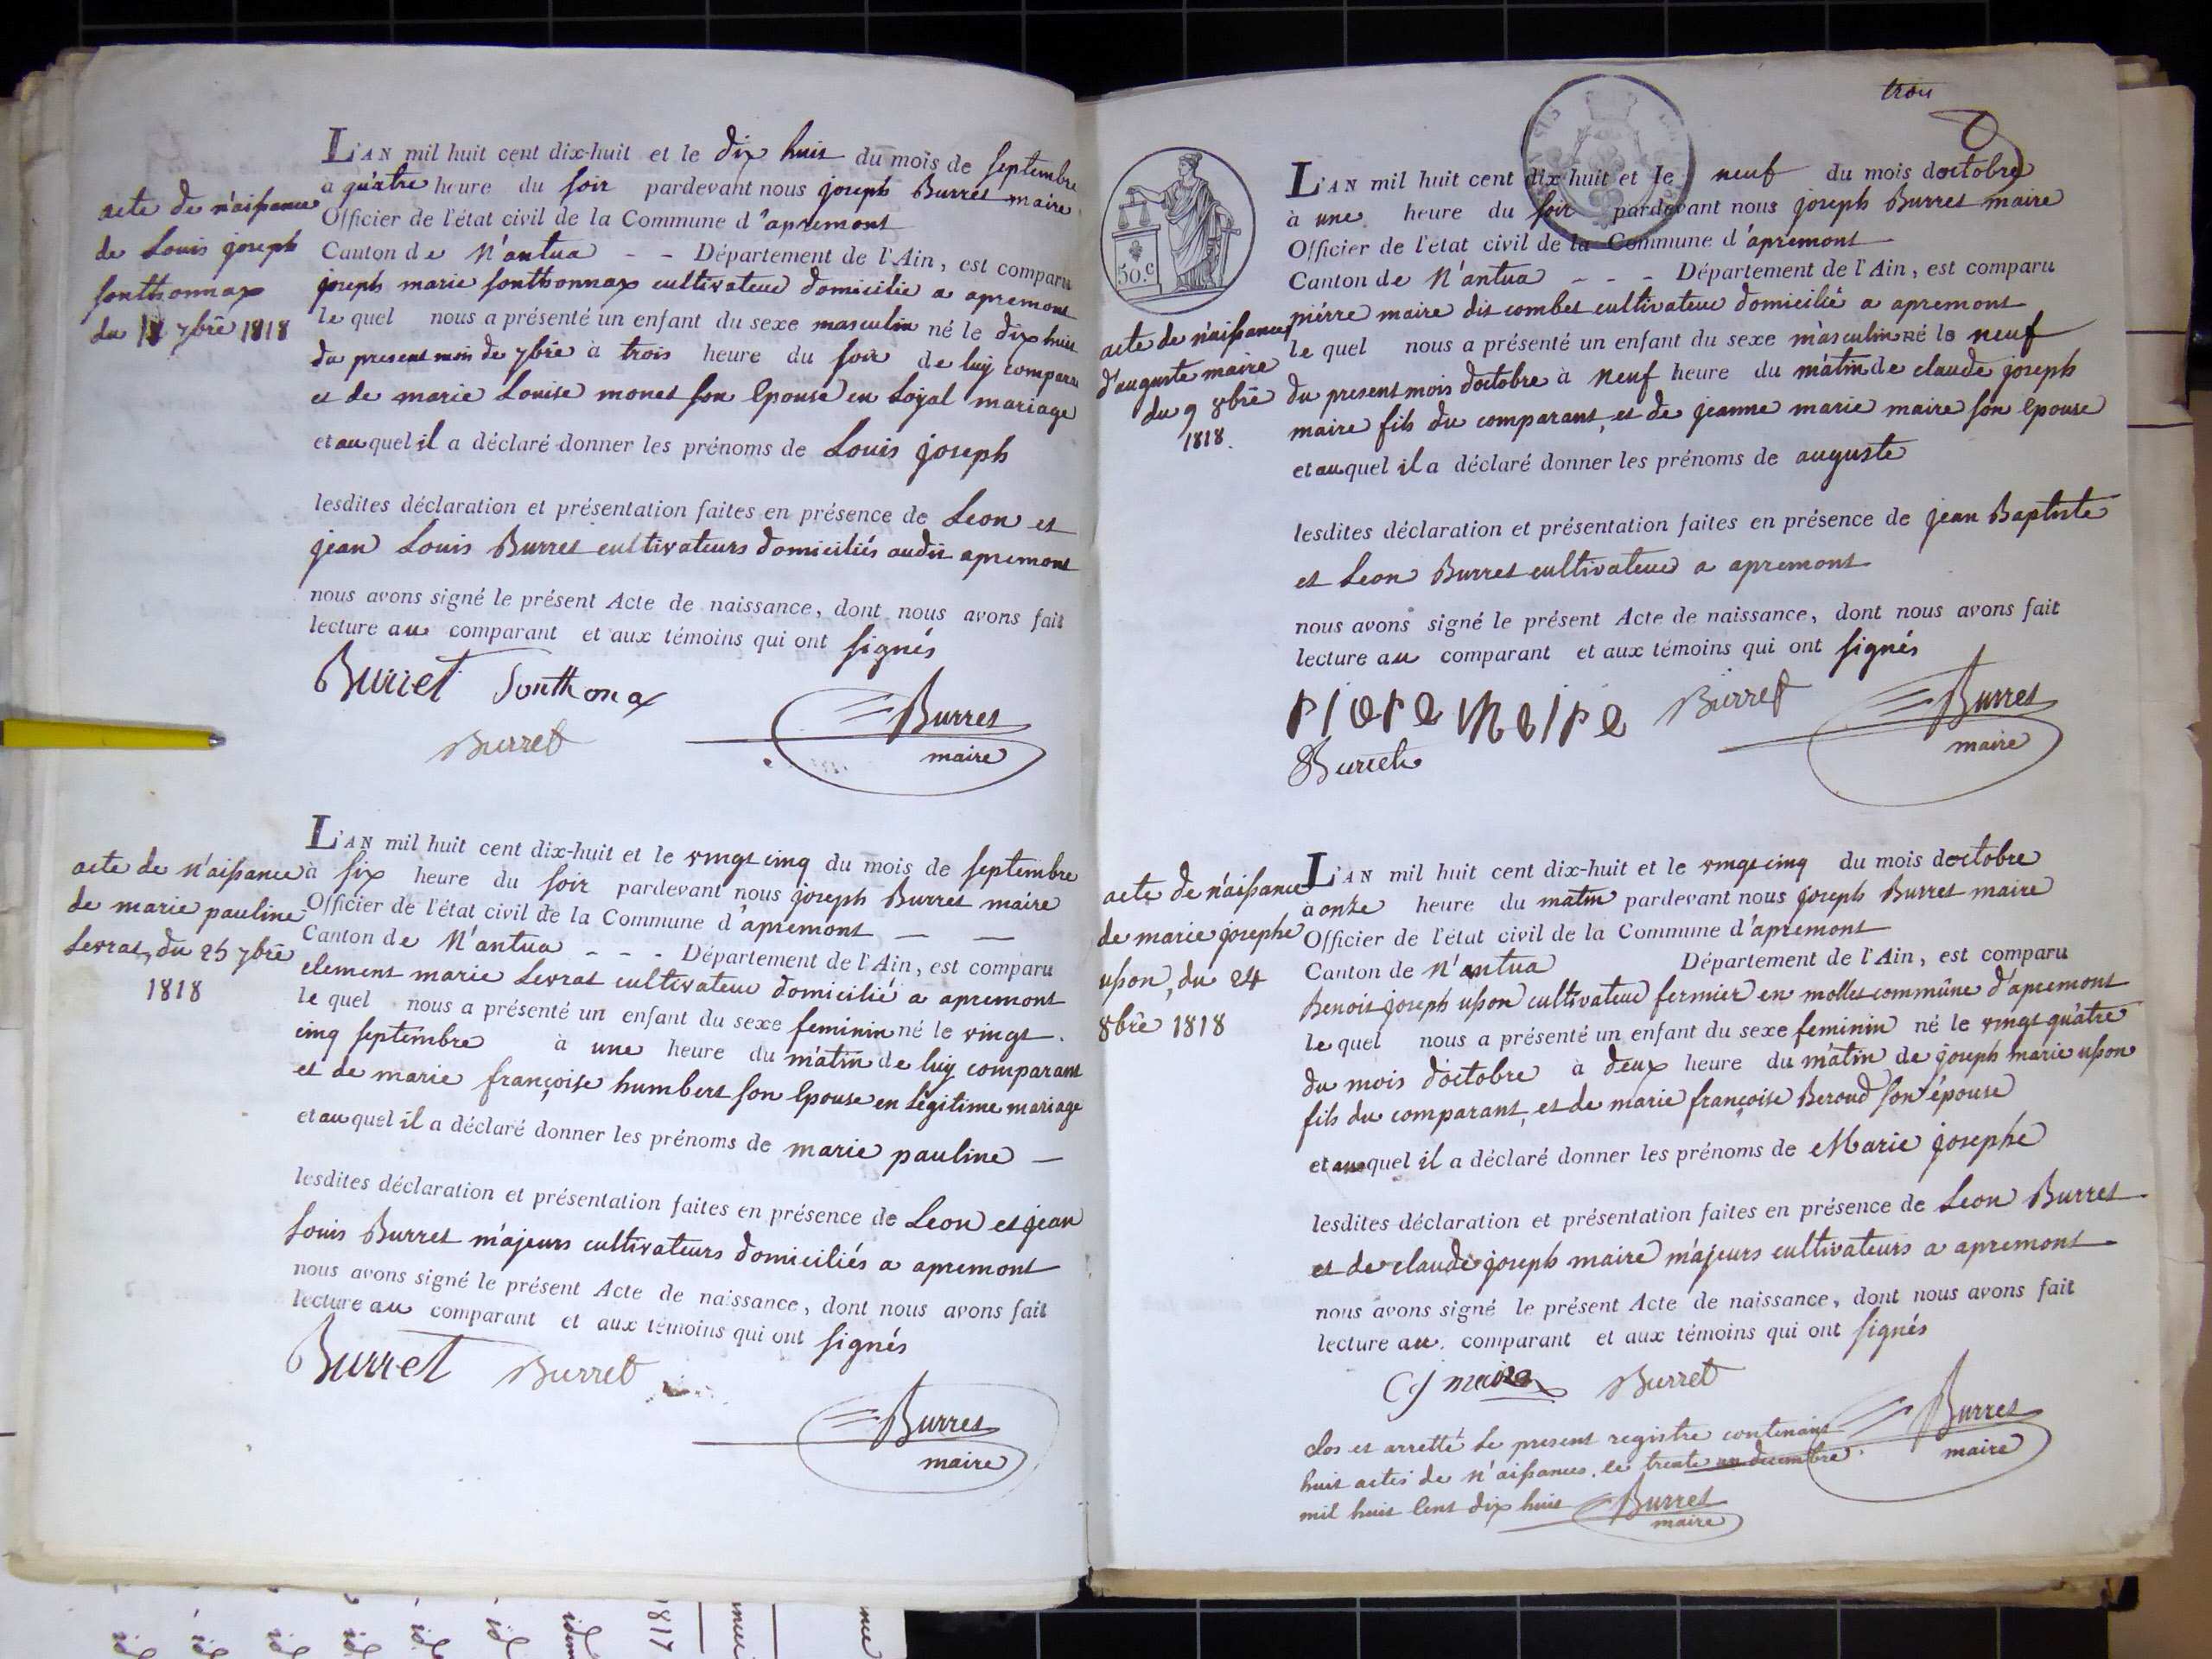 acte de n'aissance
de Louis joseph
sonthonnax
du 18 7bre 1818
L'AN mil huit cent dix-huit et le dix huit du mois de septembre
à quatre heure du soir pardevant nous joseph Burret maire
Officier de l'état civil de la Commune d'apremont
Canton de N'antua - - Département de l'Ain, est comparu
joseph marie sonthonnax cultivateur domicilié a apremont
le quel nous a présenté un enfant du sexe masculin né le dix huit
du present mois de 7bre à trois heure du soir de luy comparant
et de marie Louise monet son Epouse en Loyal mariage
et auquel il a déclaré donner les prénoms de Louis joseph
lesdites déclaration et présentation faites en présence de Leon et
jean Louis Burret cultivateurs domiciliés audit apremont
nous avons signé le présent Acte de naissance, dont nous avons fait
lecture au comparant et aux témoins qui ont signés
Burret Sonthonax
Burret
Burret
maire
acte de n'aissance
de marie pauline
Levrat, du 25 7bre
1818
L'AN mil huit cent dix-huit et le vingt cinq du mois de septembre
à six heure du soir pardevant nous joseph Burret maire
Officier de l'état civil de la Commune d'apremont
Canton de N'antua - - - Département de l'Ain, est comparu
clement marie Levrat cultivateur domicilié a apremont
le quel nous a présenté un enfant du sexe feminin né le vingt
cinq septembre à une heure du matin de luy comparant
et de marie françoise humbert son Epouse en Légitime mariage
et auquel il a déclaré donner les prénoms de marie pauline
lesdites déclaration et présentation faites en présence de Leon et jean
Louis Burret majeurs cultivateurs domiciliés a apremont
nous avons signé le présent Acte de naissance, dont nous avons fait
lecture au comparant et aux témoins qui ont signés
Burret Burret
Burret
maire
trois
50.c
acte de n'aissance
d'auguste maire
du 9 8bre
1818.
L'AN mil huit cent dix-huit et le neuf du mois doctobre
à une heure du soir pardevant nous joseph Burret maire
Officier de l'état civil de la Commune d'apremont
Canton de N'antua - - - Département de l'Ain, est comparu
piérre maire dit combet cultivateur domicilié a apremont
le quel nous a présenté un enfant du sexe masculin né le neuf
du present mois doctobre à neuf heure du matin de claude joseph
maire fils du comparant, et de jeanne marie maire son Epouse
et auquel il a déclaré donner les prénoms de auguste
lesdites déclaration et présentation faites en présence de jean Baptiste
et Leon Burret cultivateur a apremont
nous avons signé le présent Acte de naissance, dont nous avons fait
lecture au comparant et aux témoins qui ont signés
piere maire Burret
Burret
Burret
maire
acte de n'aissance
de marie josephe
usson, du 24
8bre 1818
L'AN mil huit cent dix-huit et le vingt cinq du mois doctobre
à onze heure du matin pardevant nous joseph Burret maire
Officier de l'état civil de la Commune d'apremont
Canton de N'antua Département de l'Ain, est comparu
Benoit joseph usson cultivateur fermier en mollet commune d'apremont
le quel nous a présenté un enfant du sexe feminin né le vingt quatre
du mois d'octobre à deux heure du matin de joseph marie usson
fils du comparant, et de marie françoise Beroud son épouse
et auquel il a déclaré donner les prénoms de Marie josephe
lesdites déclaration et présentation faites en présence de Leon Burret
et de claude joseph maire majeurs cultivateurs a apremont
nous avons signé le présent Acte de naissance, dont nous avons fait
lecture au comparant et aux témoins qui ont signés
Cj maire Burret
Burret
maire
Clos et arretté Le present registre contenant
huit actes de n'aissances, le trente un decembre
mil huit Cent dix huit Burret
maire
1817